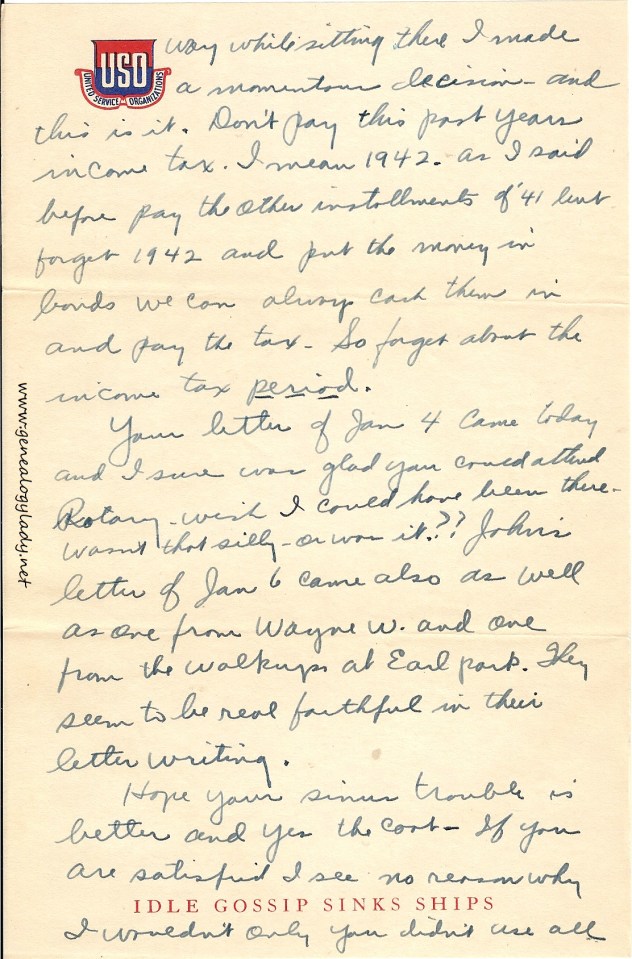 USO
UNITED SERVICE ORGANIZATIONS
way while sitting there I made
a momentous decision - and
this is it. Don't pay this past years
income tax. I mean 1942. as I said
before pay the other installments of '41 but
forget 1942 and put the money in
bonds we can always cash them in
and pay the tax - So forget about the
income tax period.
Your letter of Jan 4 came today
and I sure was glad you could attend
Rotary - wish I could have been there -
wasn't that silly - or was it?? John's
letter of Jan 6 came also as well
as one from Wayne W. and one
from the Walkups at Earl park. They
seem to be real faithful in their
letter writing.
Hope your sinus trouble is
better and yes the coat - If you
are satisfied I see no reason why
IDLE GOSSIP SINKS SHIPS
I wouldn't only you didn't use all
www.genealogylady.net